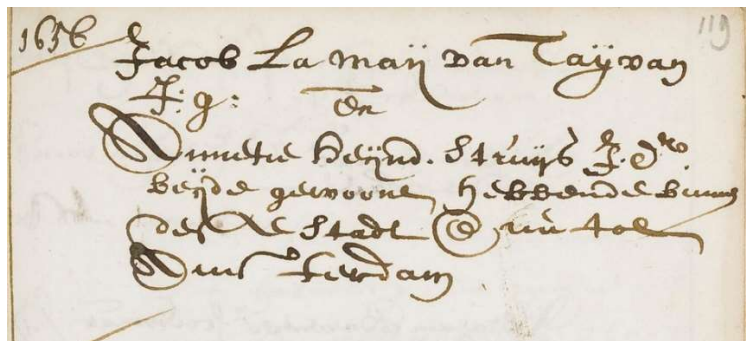 1656
119
Jacob La maij van Taijvan
J: g: En
Annetie Heijnd. Struijs J. Dr
beijde gewoont hebbende binn
des Stadt En nu tot
Amsterdam